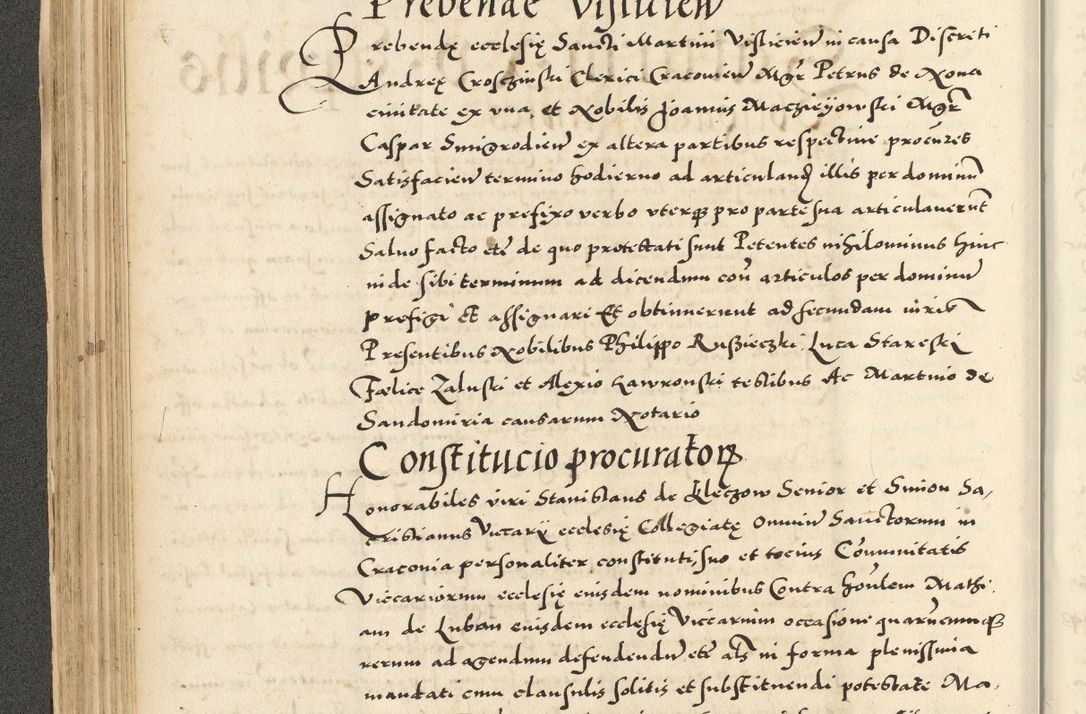 Prebendae Visliciensis
Prebendę ecclesię Sancti Martini Visliciensis in causa Discreti
Andreę Croschinski Clerici Cracoviensis Mgr Petrus de Nova
civitate ex vna, et Nobilis Joannis Maczieyowski Mgr
Caspar Smigrodien ex altera partibus respective procures
Satisfacien termino hodierno ad articuland illis per dominum
assignato ac prefixo verbo vterq pro parte sua articulaverunt
Salvo facto etc de quo protestati sunt Petentes nihilominus hinc
inde sibi terminum ad dicendum con articulos per dominum
prefigi et assignari Et obtinuerunt ad secundam iuris
Presentibus Nobilibus Philippo Ruszieczki, Luca Stareski
Fœlice Zaluski et Alexio Gawronski testibus Ac Martino de
Sandomiria causarum Notario
Constitucio procuratorum
Honorabiles viri Stanislaus de Kleczow Senior et Simon Sa,
cristianus Vicarij ecclesię Collegiatę Omnium Sanctorum in
Cracovia personaliter constituti, suo et tocius Communitatis
Viccariorum ecclesię eiusdem nominibus Contra honlem Mathi,
am de Luban eiusdem ecclesię Viccarium occasione quarumcumq
rerum ad agendum defendendum etc als in forma plenissima
mandati cum clausulis solitis et substituendi potestate Ma,